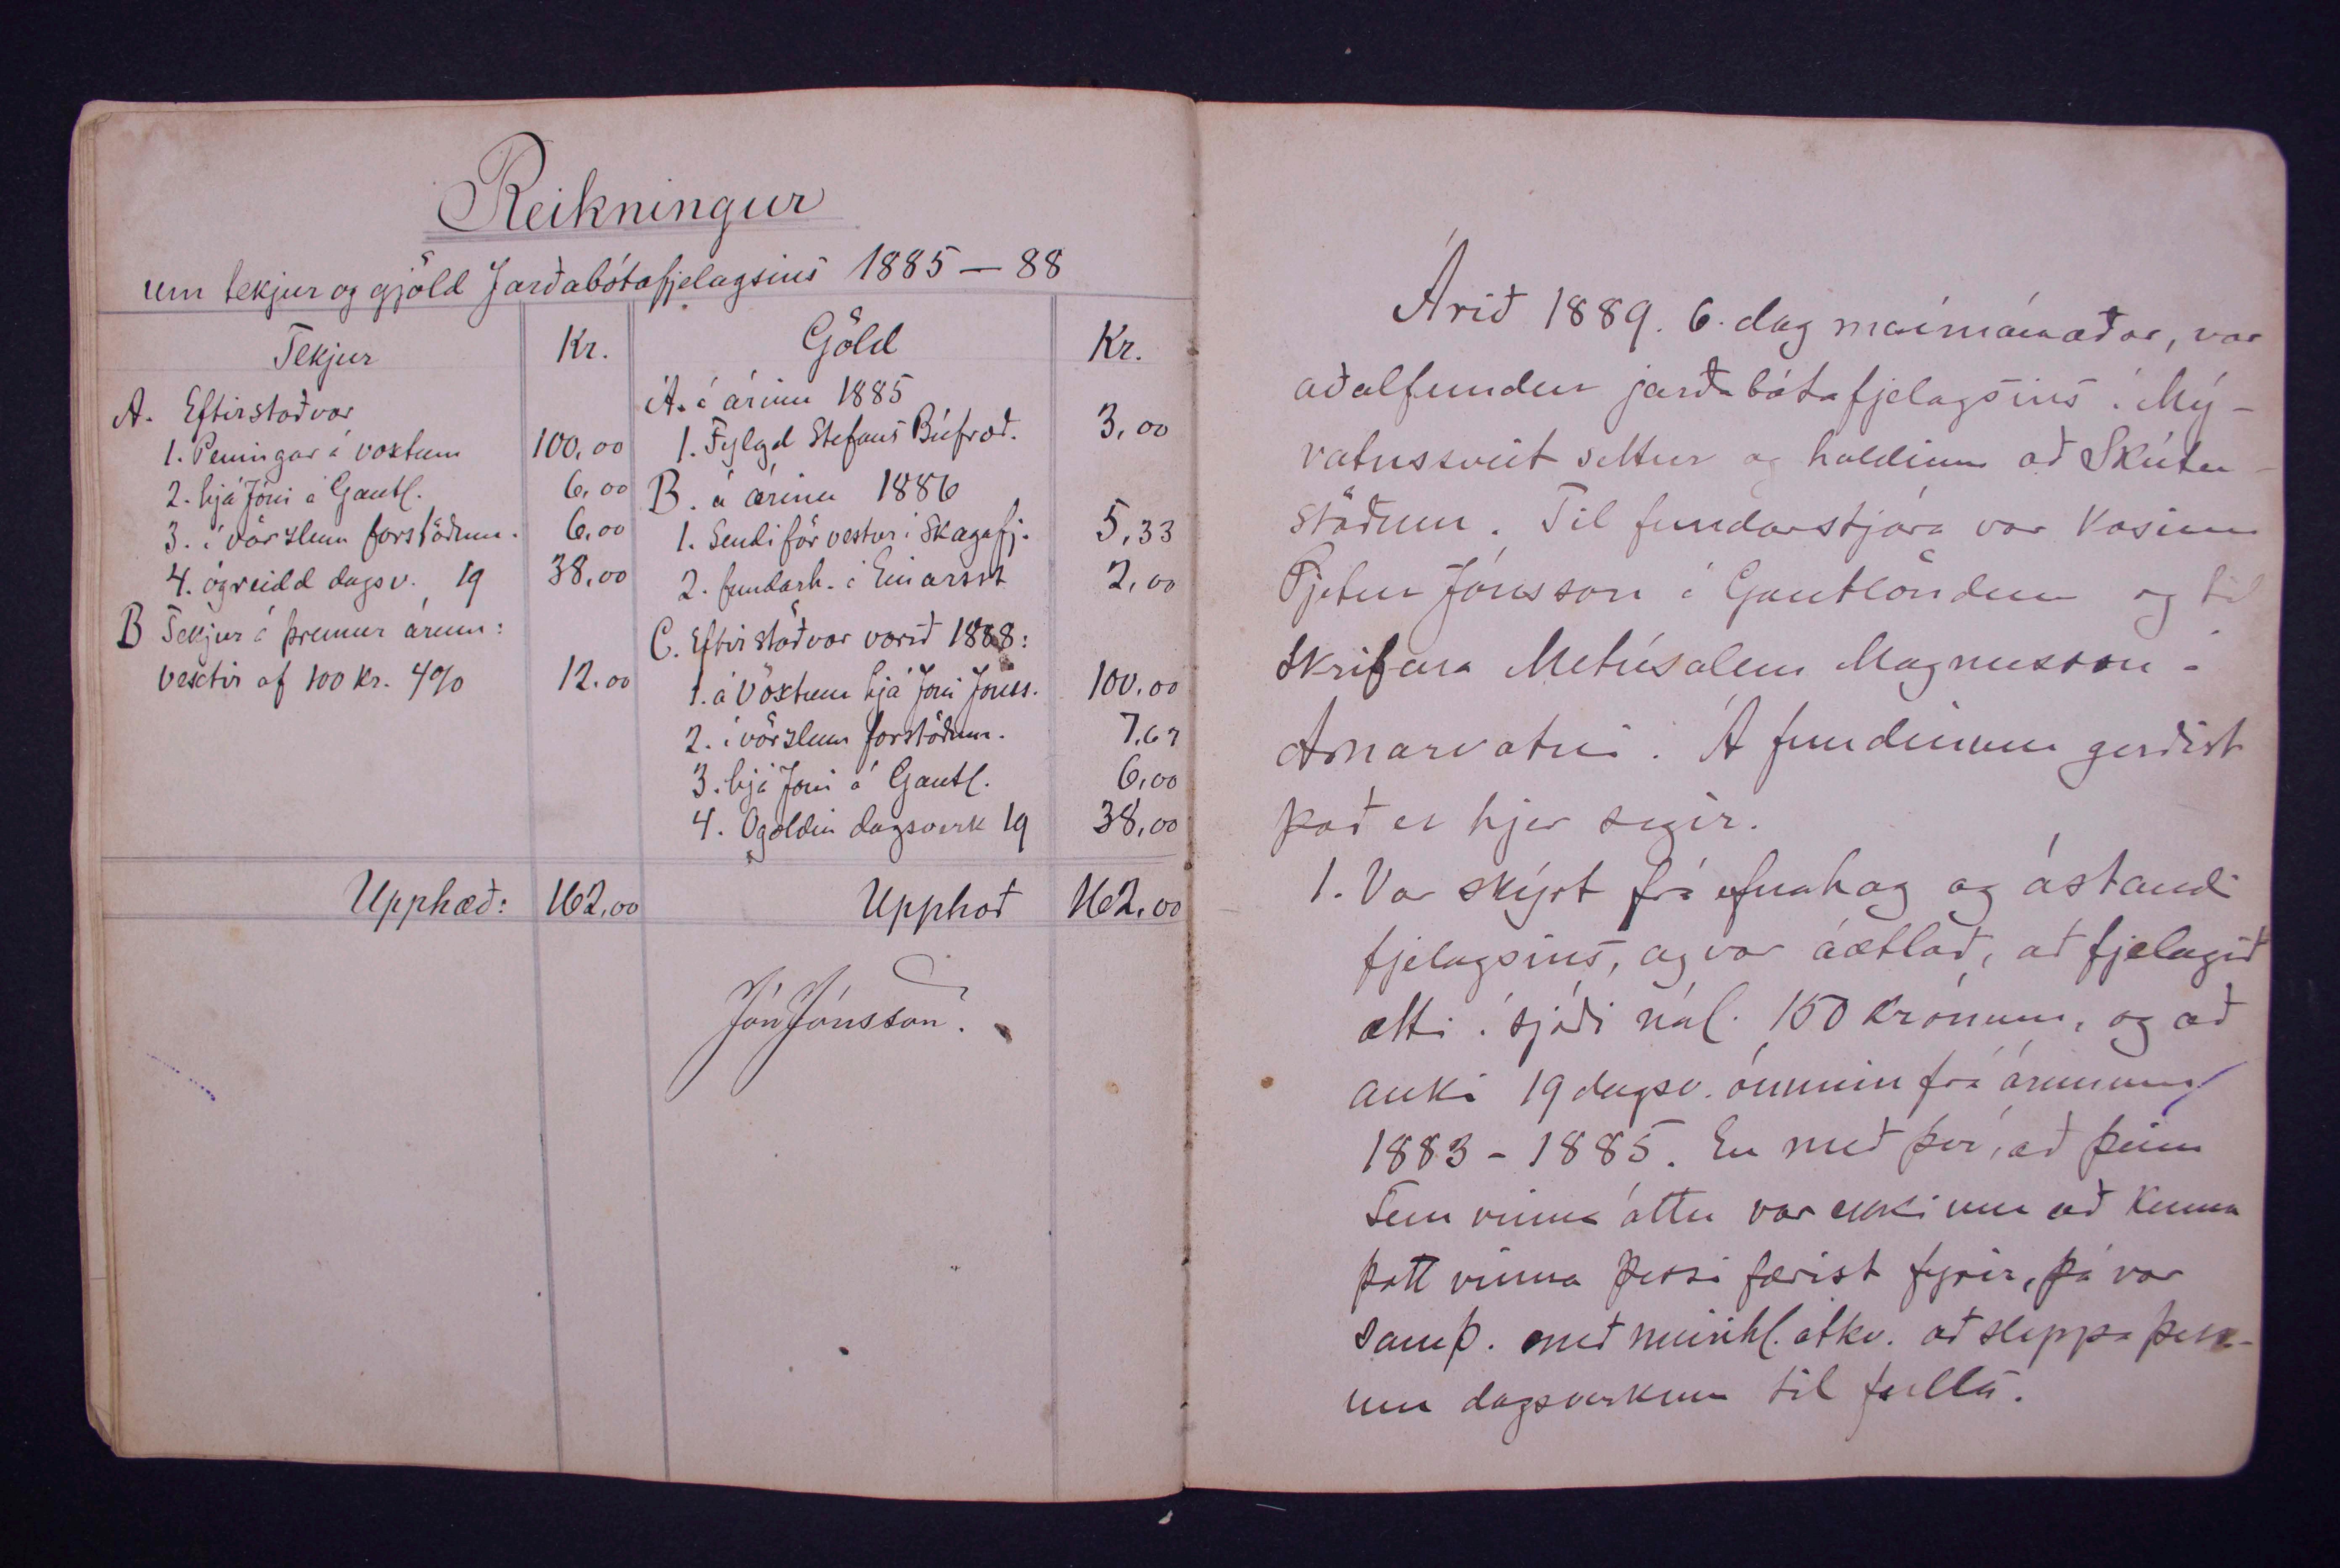 Reikningur
um tekjur og gjöld Jarðabótafjelagsins 1885 — 88
Tekjur Kr.
A. Eftirstöðvar
1. Peningar á voxtum 100,00
2. hjá Jóni á Gautl. 6,00
3. í vörzlum forstöðum. 6,00
4. ógreidd dagsv. 19 38,00
B Tekjur á þremur árum:
vextir af 100 Kr. 4% 12.00
Upphæð: 162,00
Göld Kr.
A. á árinu 1885
1. Fylgd Stefans Búfræð. 3,00
B. á árinu 1886
1. Sendiför vestur í Skagafj. 5,33
2. fundarh. á Einarsst 2,00
C. Eftirstöðvar vorið 1888:
1. á Vöxtum hjá Jóni Jónss. 100.00
2. í vörzlum forstöðum. 7,67
3. hjá Joni á Gautl. 6,00
4. Ogoldin dagsverk 19 38,00
Upphæð 162.00
Jón Jónsson.
Árið 1889. 6. dag maímánaðar, var
aðalfundur jarðabótafjelagsins í Mý-
vatnssveit settur og haldinn að Skútu-
stöðum. Til fundarstjóra var kosinn
Pjetur Jónsson á Gautlöndum og til
skrifara Metúsalem Magnusson á
Arnarvatni. Á fundinum gerðist
það er hjer segir.
1. Var skýrt frá efnahag og ástandi
fjelagsins, og var áætlað, að fjelagið
ætti í sjóði nál. 150 krónum, og að
auki 19 dagsv. óunnin frá árunum
1883 - 1885. En með því, að þeim
sem vinna áttu var ekki um að kenna
þott vinna þessi færist fyrir, þá var
samþ. með meirihl. atkv. að sleppa þess-
um dagsverkum til fulls.